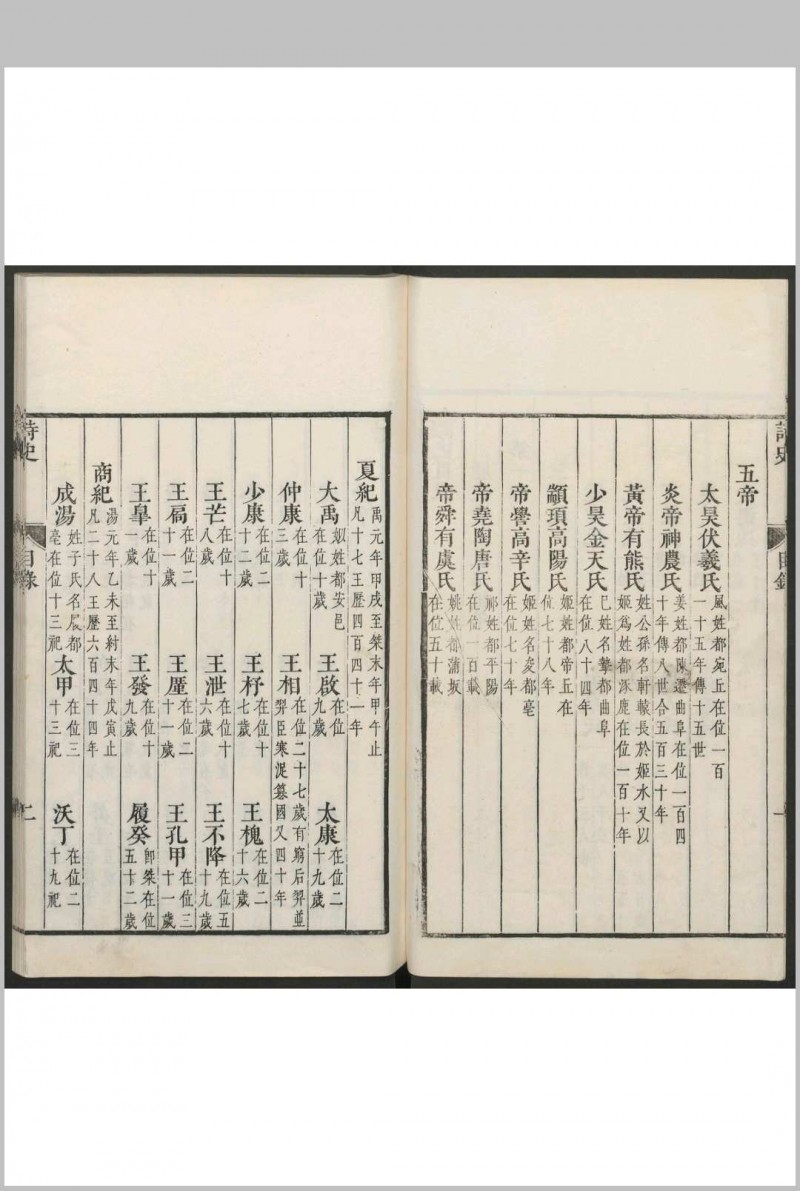 詩史 目錄 一
五帝
太昊伏羲氏 風姓都宛丘在位一百一十五年傳十五世
炎帝神農氏 姜姓都陳遷曲阜在位一百四十年傳八世合五百三十年
黃帝有熊氏 姓公孫名軒轅長於姬水又以姬爲姓都涿鹿在位一百十年
少昊金天氏 巳姓名摯都曲阜在位八十四年
顓頊高陽氏 姬姓都帝丘在位七十八年
帝嚳高辛氏 姬姓名夋都亳在位七十年
帝堯陶唐氏 祁姓都平陽在位一百載
帝舜有虞氏 姚姓都蒲坂在位五十載
夏紀 禹元年甲戌至桀末年甲午止凡十七王歷四百四十一年
大禹 姒姓都安邑在位十歲 王啟 在位九歲 太康 在位二十九歲
仲康 在位十三歲 王相 在位二十七歲有窮后羿並羿臣寒浞篡國又四十年
少康 在位二十二歲 王杼 在位十七歲 王槐 在位二十六歲
王芒 在位十八歲 王泄 在位十六歲 王不降 在位五十九歲
王扃 在位二十一歲 王厪 在位二十一歲 王孔甲 在位三十一歲
王皐 在位十一歲 王發 在位十九歲 履癸 卽桀在位五十二歲
商紀 湯元年乙未至紂末年戊寅止凡二十八王歷六百四十四年
成湯 姓子氏名履都亳在位十三祀 太甲 在位三十三祀 沃丁 在位二十九祀
詩史 目錄 二